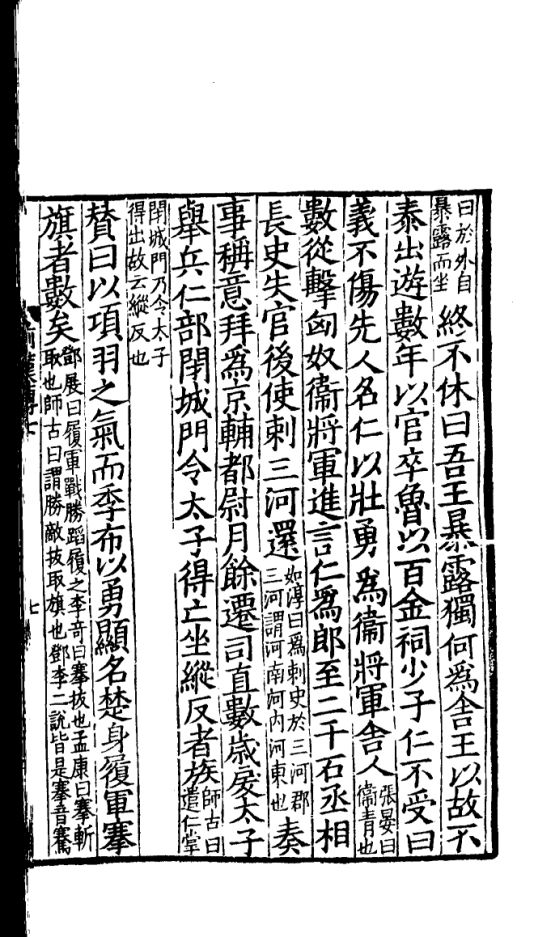 曰於外自暴露而坐終不休曰吾王暴露獨何爲舍王以故不
泰出遊數年以官卒魯以百金祠少子仁不受曰
義不傷先人名仁以壯勇爲衞將軍舍人張晏曰衞青也
數從擊匈奴衞將軍進言仁爲郎至二千石丞相
長史失官後使刺三河還如淳曰爲刺史於三河郡三河謂河南河内河東也奏
事稱意拜爲京輔都尉月餘遷司直數歲戾太子
舉兵仁部閉城門令太子得亡坐縱反者族師古曰遣仁掌
閉城門乃令太子得出故云縱反也
賛曰以項羽之氣而季布以勇顯名楚身履軍搴
旗者數矣鄧展曰履軍戰勝蹈履之李奇曰搴拔也孟康曰搴斬取也師古曰謂勝敵拔取旗也鄧李二說皆是搴音騫
七